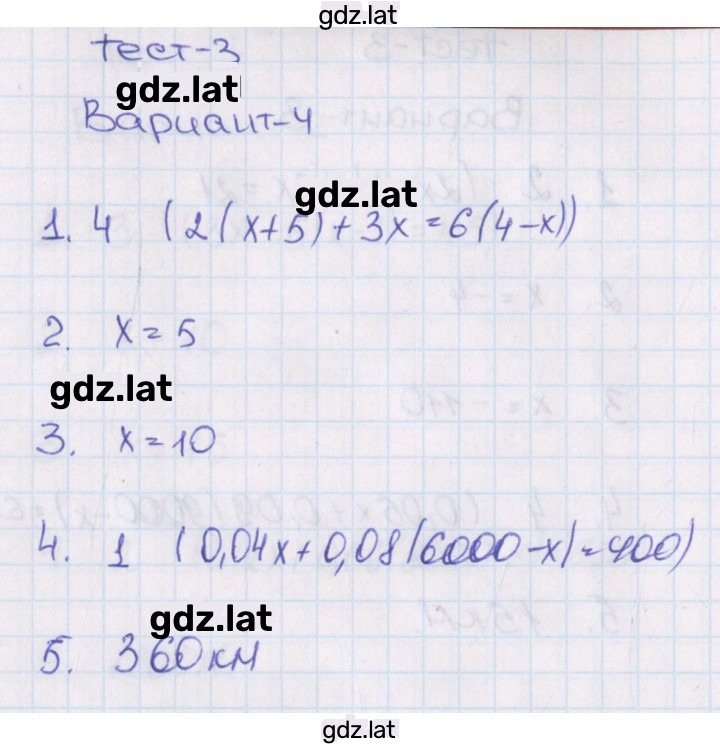 gdz.lat
Тест-3
gdz.lat
Вариант-4
gdz.lat
1. 4 (2(x+5)+3x=6(4-x))
2. x=5
gdz.lat
3. x=10
4. 1 (0,04x+0,08(6000-x)=400)
gdz.lat
5. 360км
gdz.lat